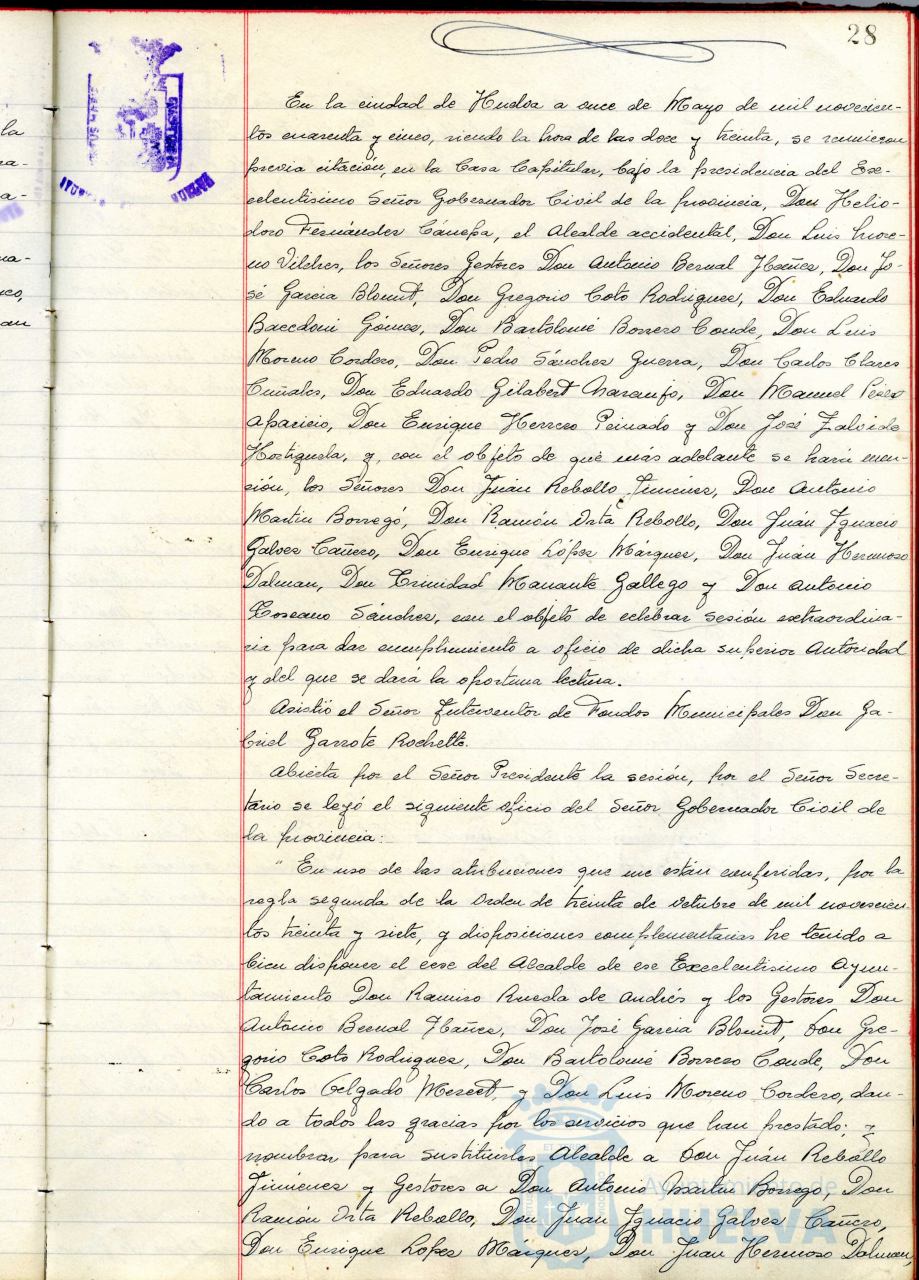 28
En la ciudad de Huelva a once de Mayo de mil novecien-
tos cuarenta y cinco, siendo la hora de las doce y treinta, se reunieron
previa citación, en la Casa Capitular, bajo la presidencia del Ex-
celentisimo Señor Gobernador Civil de la provincia, Don Helio-
doro Fernández Cánepa, el Alcalde accidental, Don Luis More-
no Vilches, los Señores Gestores Don Antonio Bernal Ibañez, Don Jo-
sé Garcia Blount, Don Gregorio Coto Rodriguez, Don Eduardo
Baccdoni Gómez, Don Bartolomé Borrero Conde, Don Luis
Moreno Cordero, Don Pedro Sánchez Guerra, Don Carlos Clares
Cuñales, Don Eduardo Gilabert Naranjo, Don Manuel Pérez
Aparicio, Don Enrique Herrero Peinado y Don José Zalvide
Hortiguela, y, con el objeto de que más adelante se hará men-
ción, los Señores Don Juán Rebollo Jiménez, Don Antonio
Martin Borregó, Don Ramón Orta Rebollo, Don Juán Ignacio
Galvez Cañero, Don Enrique López Márquez, Don Juán Hermoso
Dalman, Don Trinidad Manante Gallego y Don Antonio
Toscano Sánchez, con el objeto de celebrar sesión extraordina-
ria para dar cumplimiento a oficio de dicha superior Autoridad
y del que se dará la oportuna lectura.
Asistió el Señor Interventor de Fondos Municipales Don Ga-
briel Garrote Rochette.
Abierta por el Señor Presidente la sesión, por el Señor Secre-
tario se leyó el siguiente oficio del Señor Gobernador Civil de
la provincia:
" En uso de las atribuciones que me están conferidas, por la
regla segunda de la Orden de treinta de Octubre de mil novescien-
tos treinta y siete, y disposiciones complementarias he tenido a
bien disponer el cese del Alcalde de ese Excelentisimo Ayun-
tamiento Don Ramiro Rueda de Andrés y los Gestores Don
Antonio Bernal Ibañez, Don José Garcia Blount, Don Gre-
gorio Coto Rodriguez, Don Bartolomé Borrero Conde, Don
Carlos Gelgado Merect, y Don Luis Moreno Cordero, dan-
do a todos las gracias por los servicios que han prestado; y
nombrar para sustituirlos Alcalde a Don Juán Rebollo
Jiménez y Gestores a Don Antonio Martin Borrego, Don
Ramón Orta Rebollo, Don Juan Ignacio Galvez Cañero,
Don Enrique Lopez Márquez, Don Juan Hermoso Dalman,
Ayuntamiento de
HUELVA